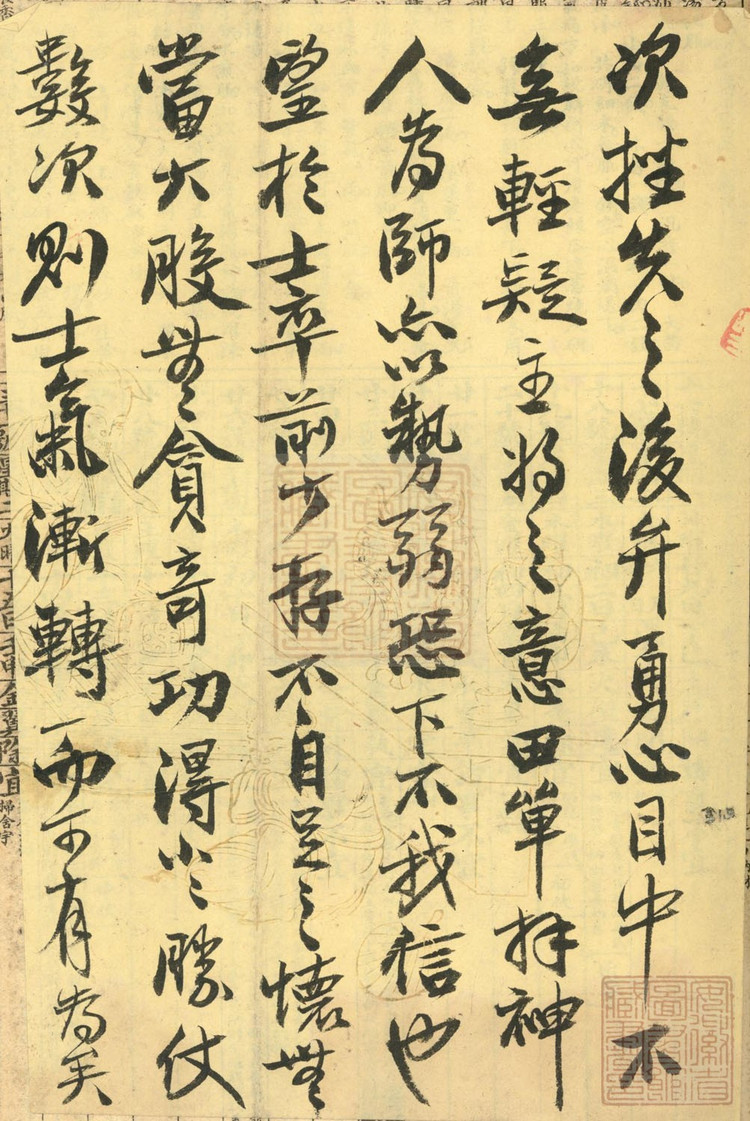 次挫失之後弁勇心目中不
無輕疑主將之意田單拜神
人為師亦以勢弱恐下不我信也
望於士卒前少存不自足之懷無
當大股無貪奇功得小小勝仗
數次則士氣漸轉而可有為矣
掃舍宇